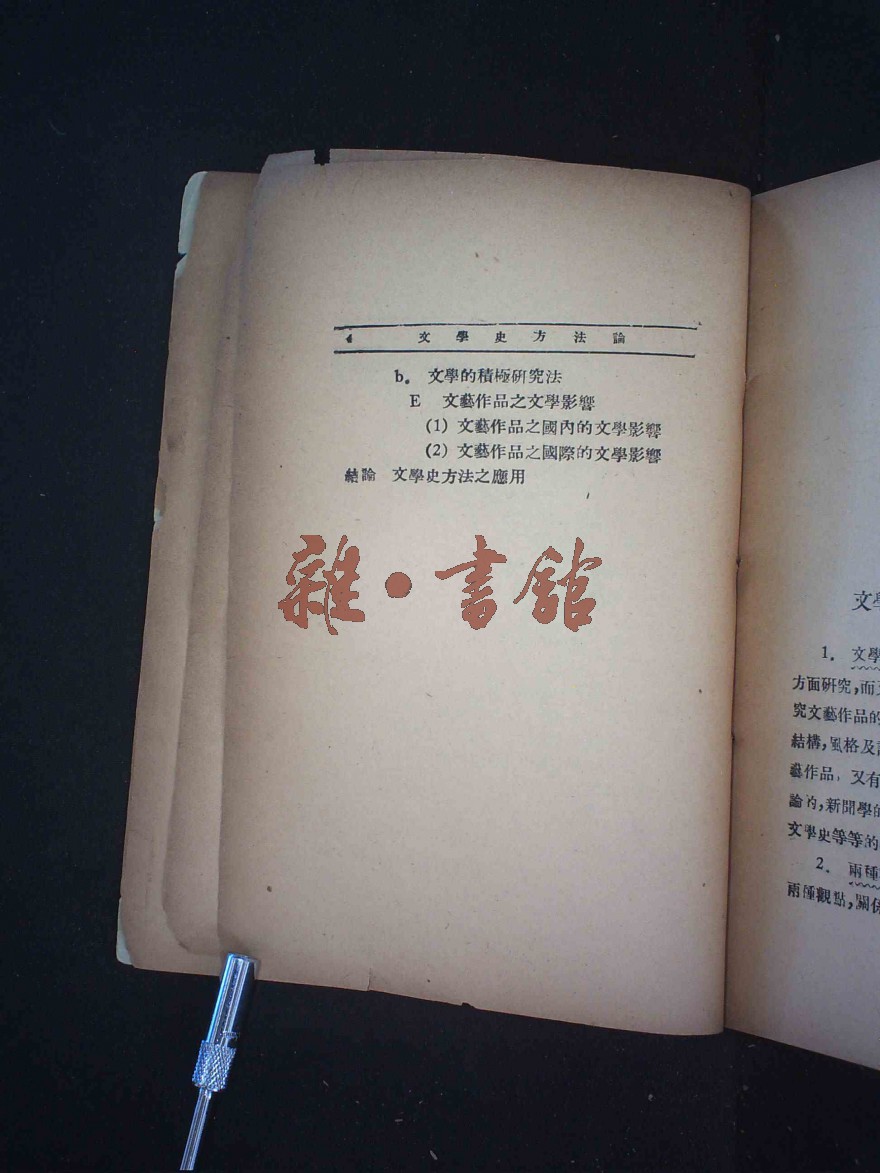 4 文學史方法論
b. 文學的積極研究法
E 文藝作品之文學影響
(1) 文藝作品之國內的文學影響
(2) 文藝作品之國際的文學影響
結論 文學史方法之應用
雜·書館
文學
1. 文學
方面研究,而
究文藝作品的
結構,風格及
藝作品,又有
論的,新聞學的
文學史等等的
2. 兩種
兩種觀點,關係